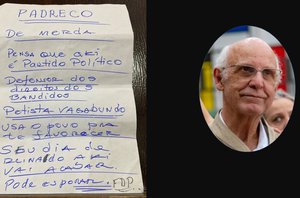 PADRECO
De MERDA
PENSA QUE AKI
É PARTIDO POLÍTICO
DEFENSOR DOS
DIREITOS DOS
BANDIDOS
PETISTA VAGABUNDO
USA O POVO PRA
TE FAVORECER
SEU DIA DE
REINADO AKI
VAI ACABAR.
PODE ESPERAR. FDP.